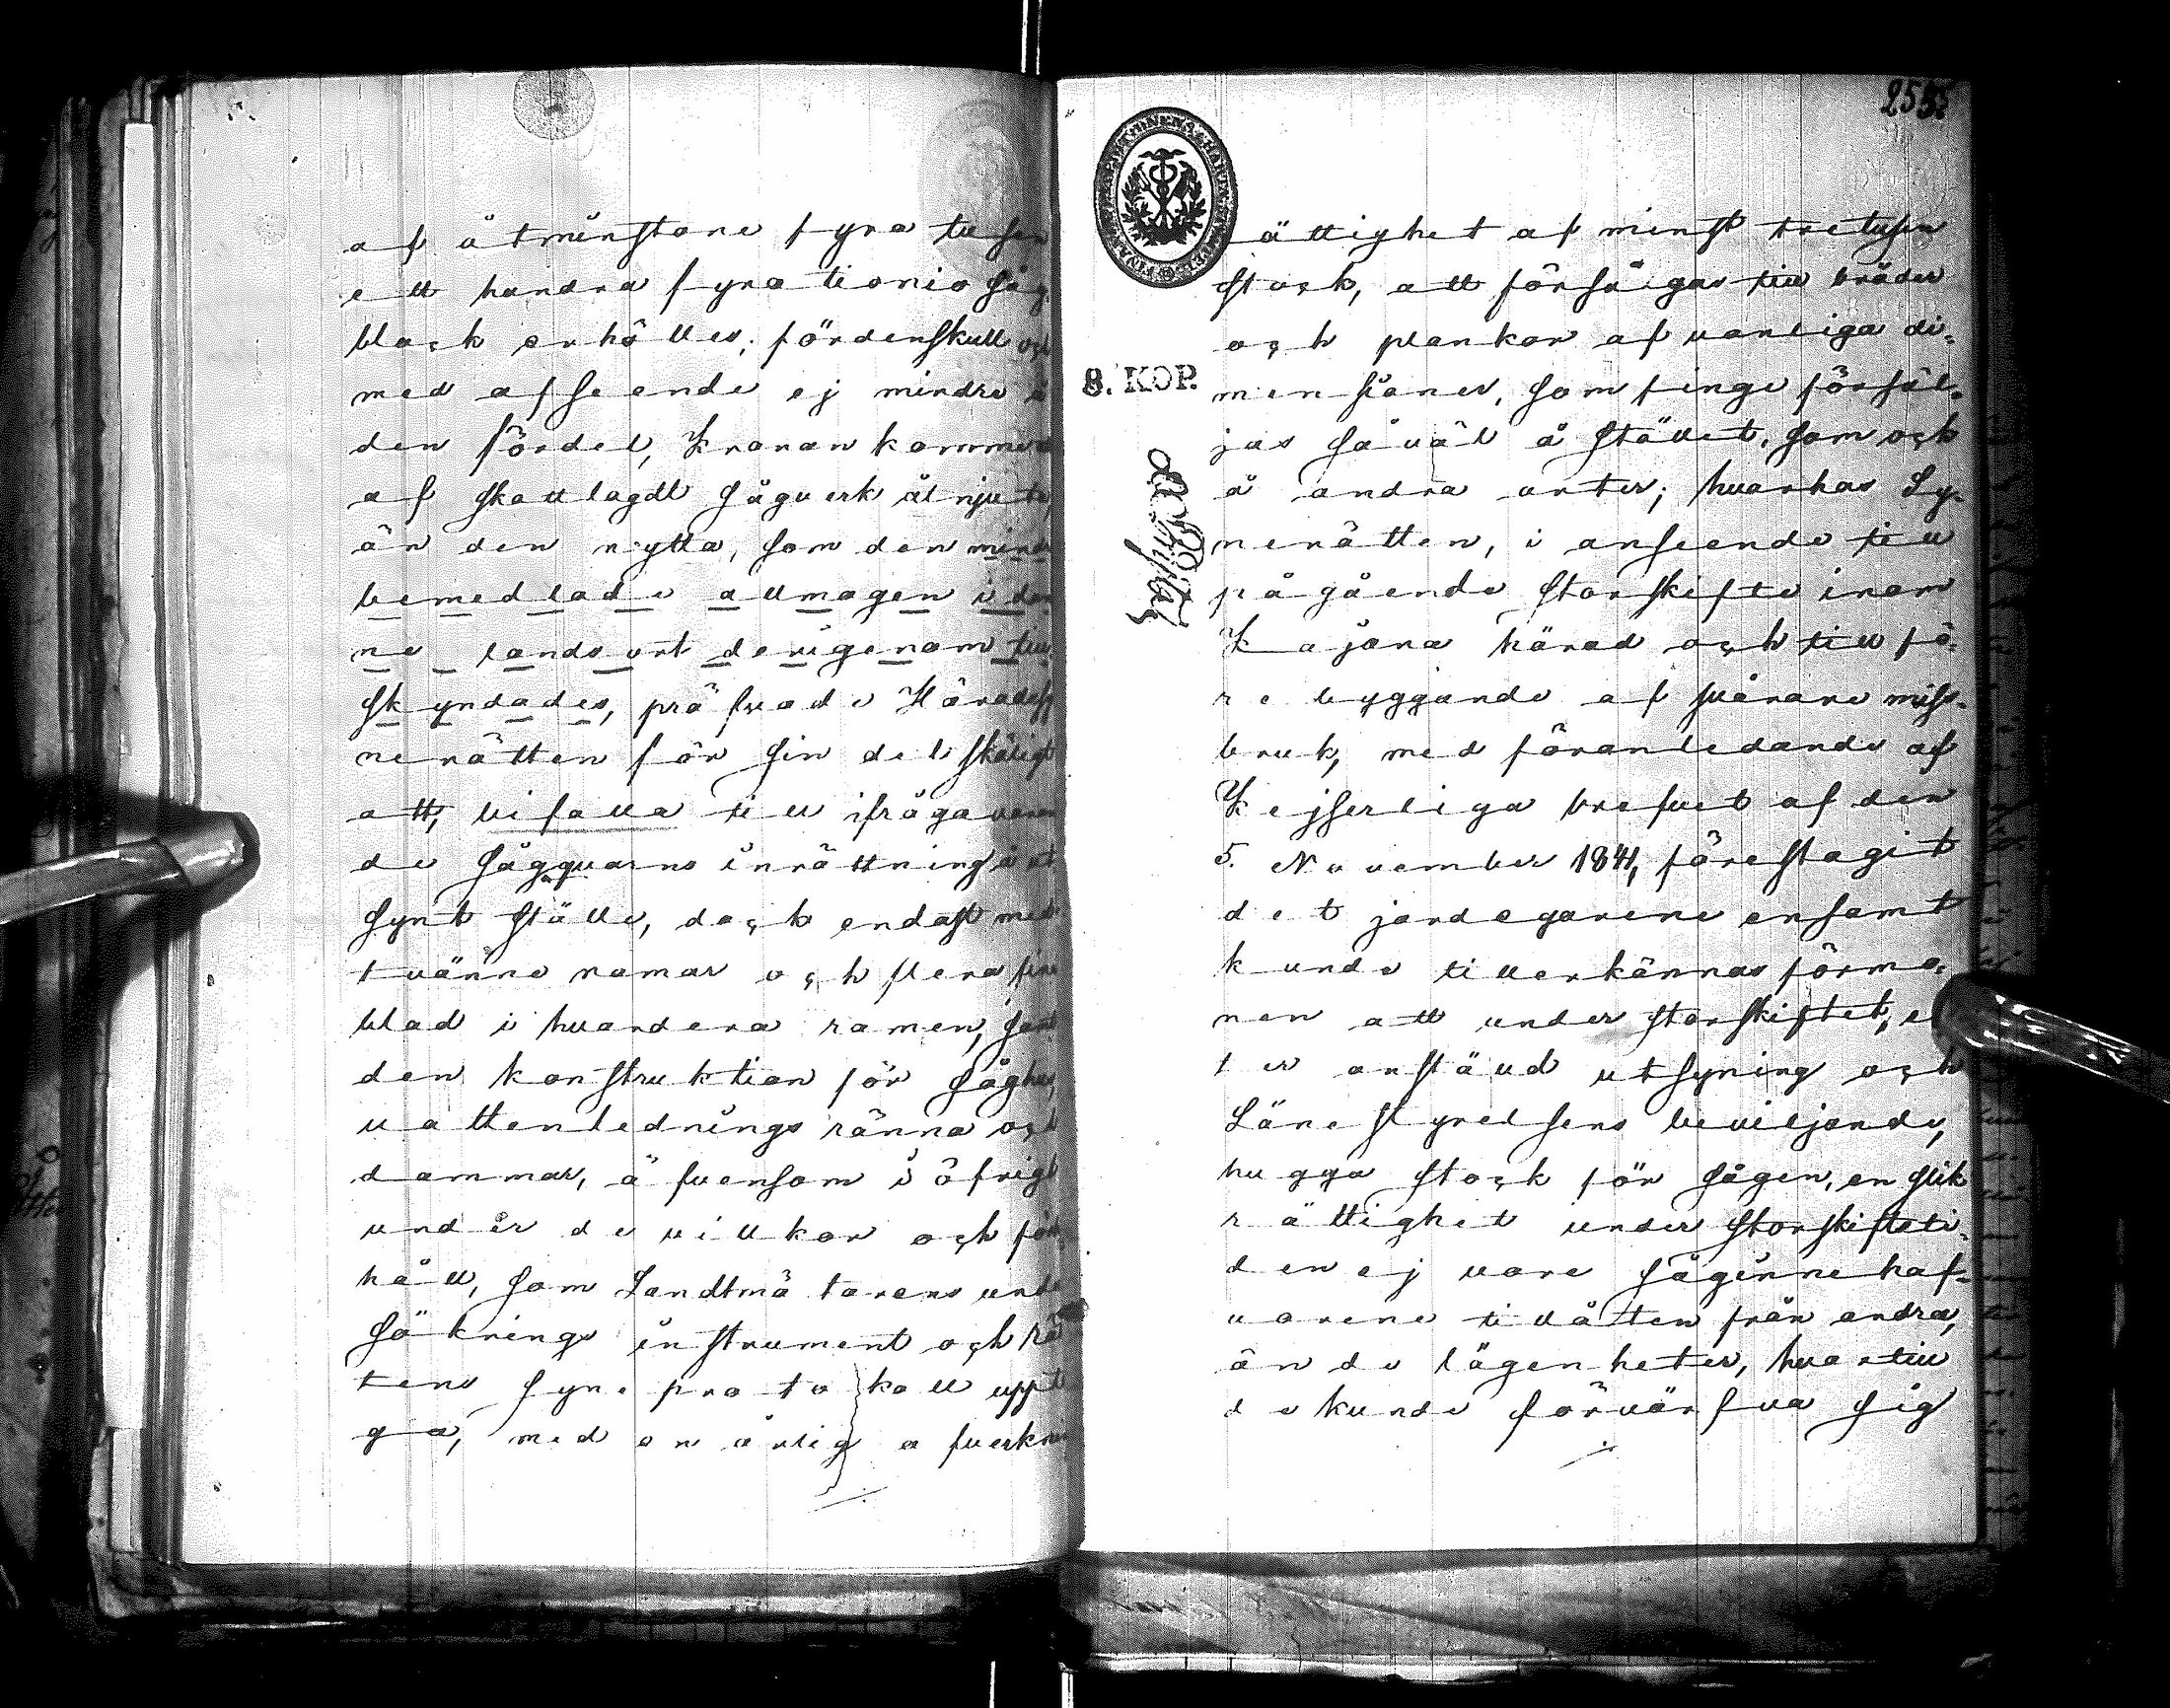 af åtminstone fyratusen
ett hundra fyrationio såg
black erhölles; fördenskull och
med afseende ej mindre å
den fördel, Kronan komme
af skattlagdt sågverk åtnjuta,
än den nytta, som den mindre
bemedlade allmogen i den
ne landsort derigenom till
skyndades, pröfvade Häradssy
nerätten för sin del skäligt
att, bifalla till ifrågavaran
de sågqvarns inrättning å ut
synt ställe, dock endast med
tvänne ramar och flera fina
blad i hvardera ramen, samt
den konstruktion för såghus,
vattenlednings ränna och
dammar, äfvensom i öfrigt
under de villkor och för
håll, som Landtmätarens unde
söknings instrument och rä
tens syneprotokoll uppt
ga, med en årlig afverkni
255
8. KOP.
rättighet af minst tretusen
stock, att försågas till bräder
och plankor af vanliga di-
mensioner, som finge försäl-
jas såväl å stället, som ock
å andra orter; hvarhos Sy-
nerätten, i anseende till
pågående storskifte inom
Kajana härad och till fö-
rebyggande af svårare miss-
bruk, med föranledande af
Kejserliga brefvet af den
5. November 1841, föreslagit
det jordegarene ensamt
kunde tillerkännas förmo-
nen att under storskiftet, ef
ter anstäld utsyning och
Länestyrelsens beviljande,
hugga stock för sågen, en slik
rättighet under storskifteti-
den ej vore såginnehaf-
varene tillåten från andra,
än de lägenheter, hvartill
de kunde förvärfva sig